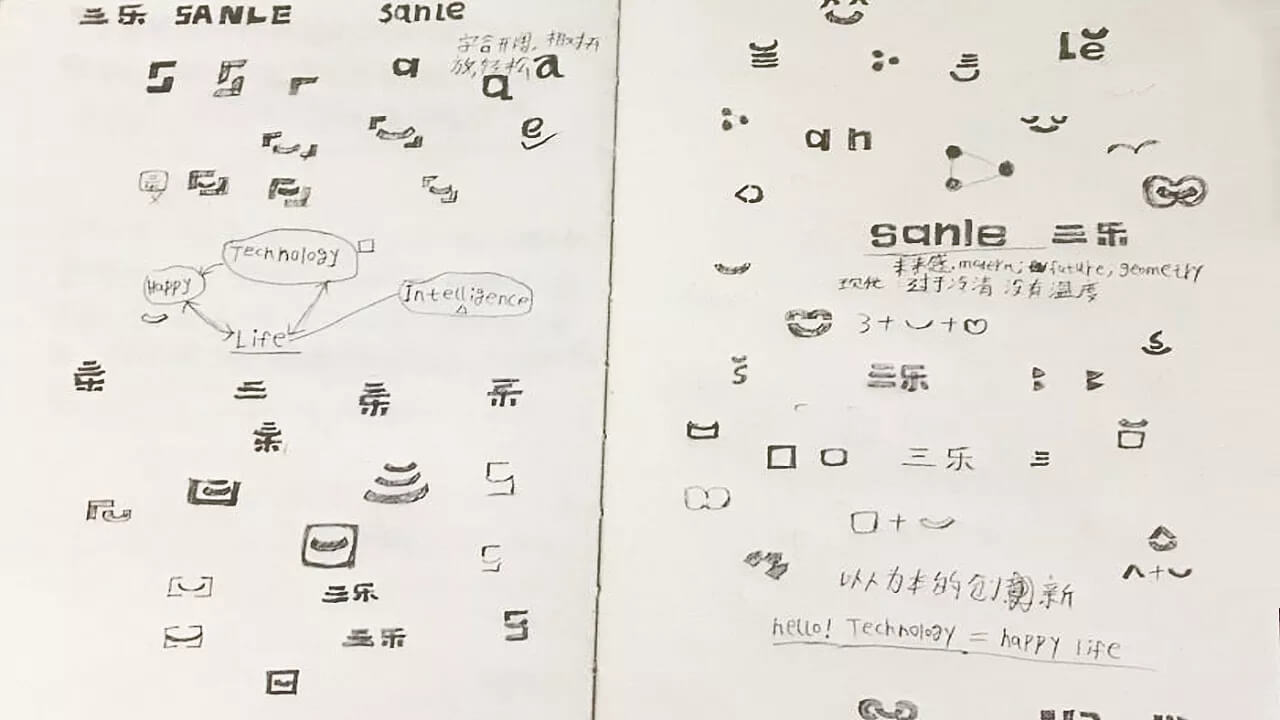 三乐 SANLE sanle
字合开阔, 相对开
放,轻松,
a a a
e
Technology
Happy
Intelligence
Life
三
三乐
三乐
S
Le
an
sanle 三乐
未来感, modern, future, geometry
现代 过于冷清 没有温度
3+ +
s
š
三乐
三乐
+
以人为本的创新
+
hello! Technology = happy life